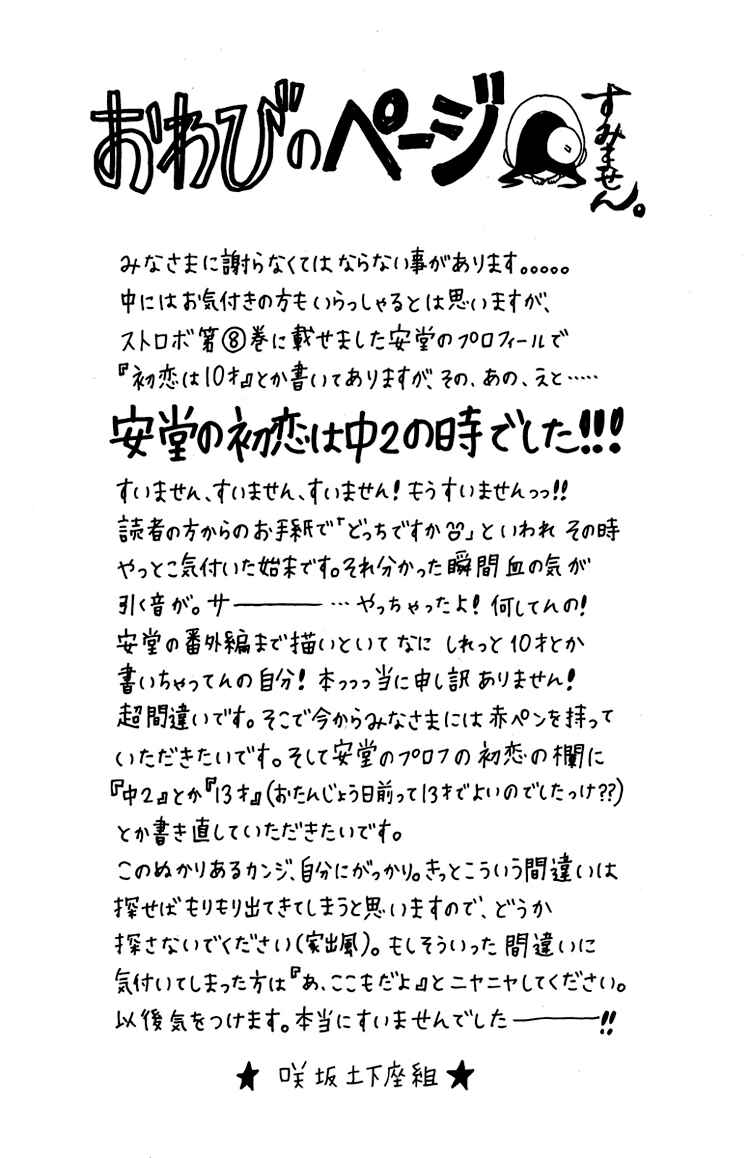 おわびのページ
すみません。
みなさまに謝らなくてはならない事があります。。。。。
中にはお気付きの方もいらっしゃるとは思いますが、
ストロボ第⑧巻に載せました安堂のプロフィールで
『初恋は10才』とか書いてありますが、その、あの、えと……
安堂の初恋は中2の時でした!!!
すいません、すいません、すいません!もうすいませんっっ!!
読者の方からのお手紙で「どっちですか」といわれ その時
やっとこ気付いた始末です。それ分かった瞬間血の気が
引く音が。サ――― …やっちゃったよ!何してんの!
安堂の番外編まで描いといて なに しれっと10才とか
書いちゃってんの自分!本っっっ当に申し訳ありません!
超間違いです。そこで今からみなさまには赤ペンを持って
いただきたいです。そして安堂のプロフの初恋の欄に
『中2』とか『13才』(おたんじょう日前って13才でよいのでしたっけ??)
とか書き直していただきたいです。
このぬかりあるカンジ、自分にがっかり。きっとこういう間違いは
探せばもりもり出てきてしまうと思いますので、どうか
探さないでください(家出風)。もしそういった間違いに
気付いてしまった方は『あ、ここもだよ』とニヤニヤしてください。
以後気をつけます。本当にすいませんでした―――!!
★ 咲坂土下座組 ★